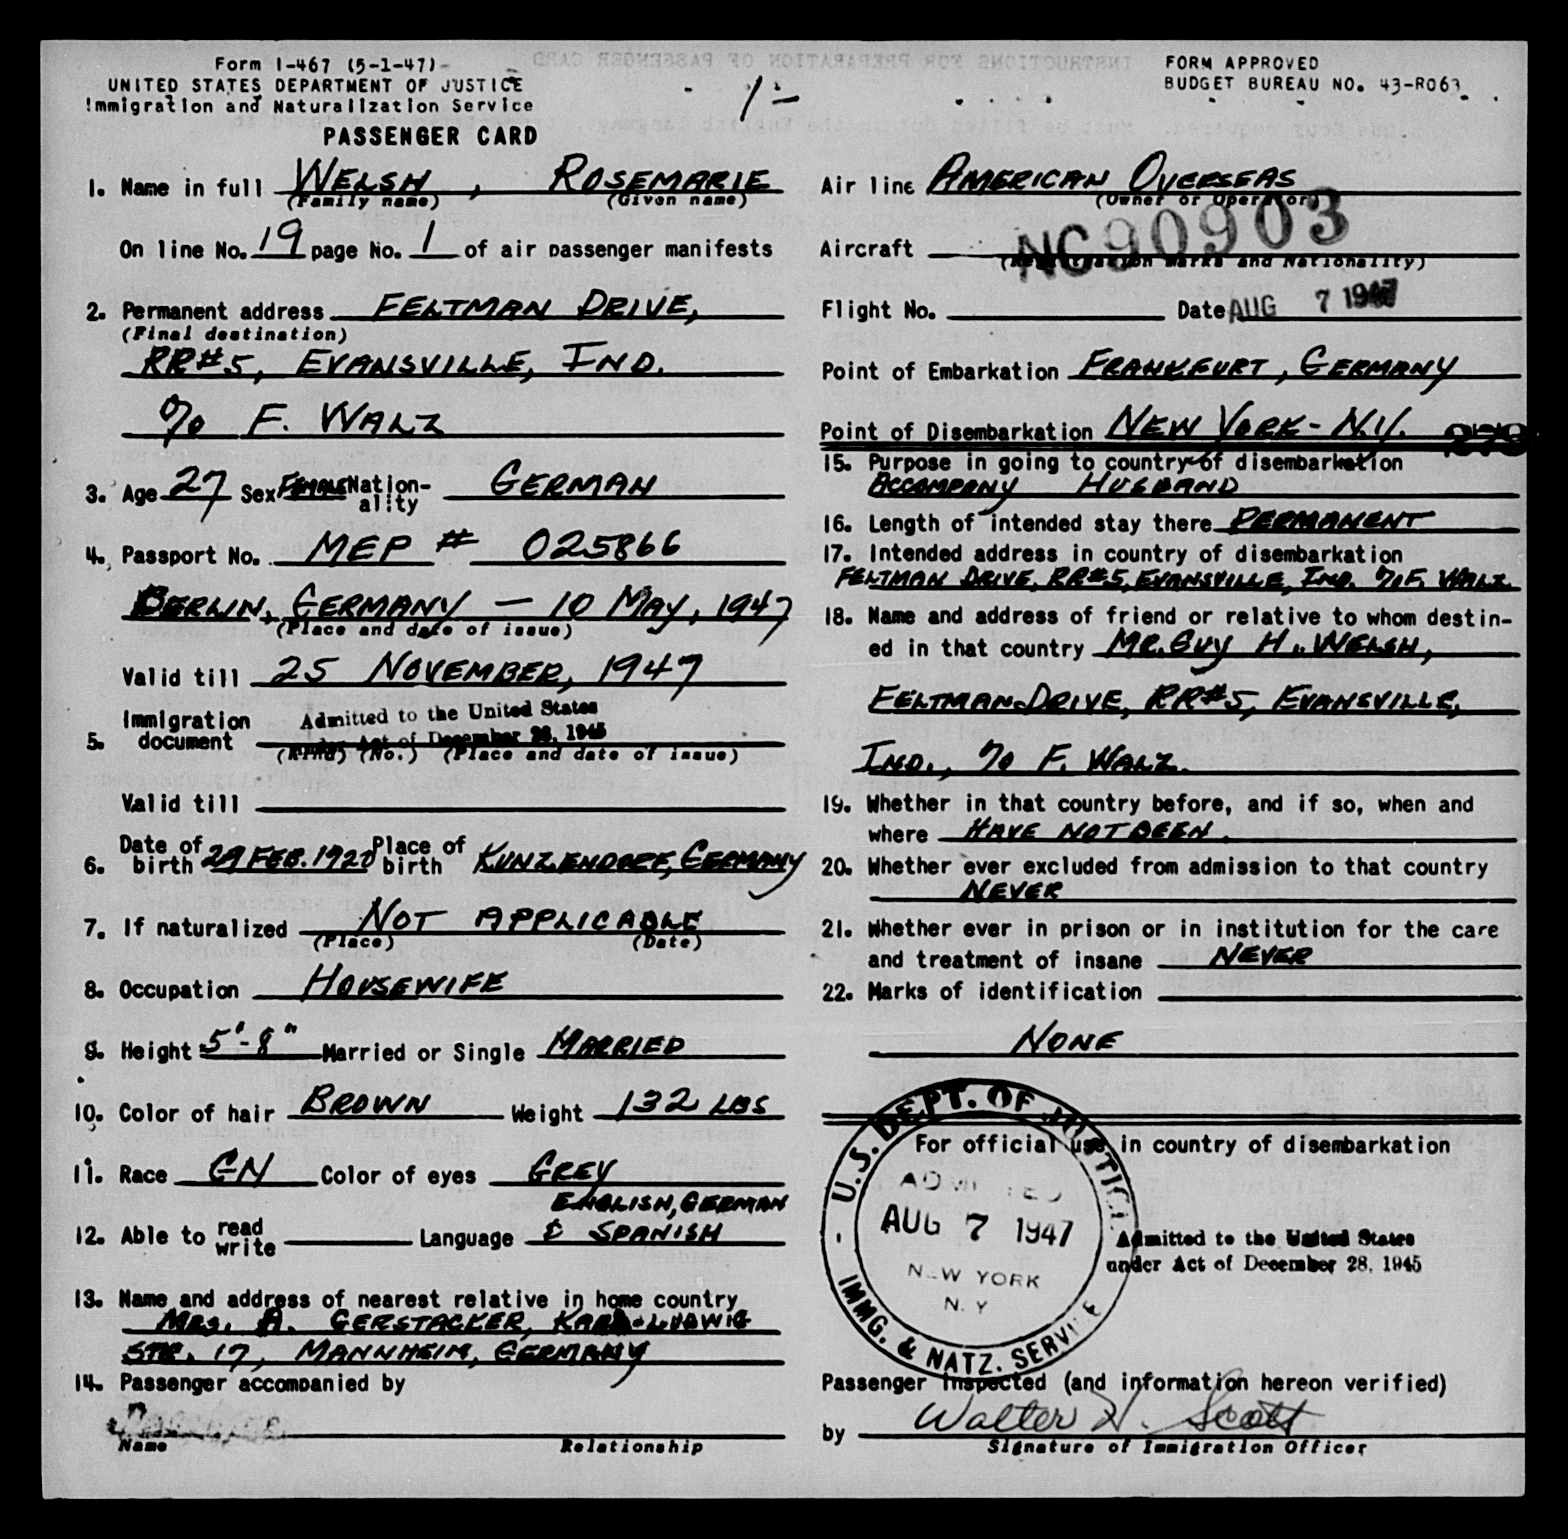 Form I-467 (5-1-47)
UNITED STATES DEPARTMENT OF JUSTICE
Immigration and Naturalization Service
PASSENGER CARD
FORM APPROVED
BUDGET BUREAU NO. 43-R063
1. Name in full WELSH, ROSEMARIE
(Family name) (Given name)
On line No. 19 page No. 1 of air passenger manifests
2. Permanent address FELTMAN DRIVE,
(Final destination)
RR#5, EVANSVILLE, IND.
% F. WALZ
3. Age 27 Sex FEMALE Nation-
ality GERMAN
4. Passport No. MEP # 025866
BERLIN, GERMANY — 10 MAY, 1947
(Place and date of issue)
Valid till 25 NOVEMBER, 1947
5. Immigration document Admitted to the United States
under Act of December 28, 1945
(Kind) (No.) (Place and date of issue)
Valid till
6. Date of birth 29 FEB. 1920 Place of birth KUNZENDORF, GERMANY
7. If naturalized NOT APPLICABLE
(Place) (Date)
8. Occupation HOUSEWIFE
9. Height 5'-8" Married or Single MARRIED
10. Color of hair BROWN Weight 132 LBS
11. Race GN Color of eyes GREY
ENGLISH, GERMAN
12. Able to read write Language & SPANISH
13. Name and address of nearest relative in home country
MRS. A. GERSTACKER, KARL-LUDWIG
STR. 17, MANNHEIM, GERMANY
14. Passenger accompanied by
Name Relationship
Air line AMERICAN OVERSEAS
(Owner or Operator)
Aircraft NC90903
(Registration marks and Nationality)
Flight No. Date AUG 7 1947
Point of Embarkation FRANKFURT, GERMANY
Point of Disembarkation NEW YORK - N.Y.
15. Purpose in going to country of disembarkation
ACCOMPANY HUSBAND
16. Length of intended stay there PERMANENT
17. Intended address in country of disembarkation
FELTMAN DRIVE, RR#5, EVANSVILLE, IND. % F. WALZ
18. Name and address of friend or relative to whom destin-
ed in that country MR. GUY H. WELSH,
FELTMAN DRIVE, RR#5, EVANSVILLE,
IND., % F. WALZ.
19. Whether in that country before, and if so, when and
where HAVE NOT BEEN.
20. Whether ever excluded from admission to that country
NEVER
21. Whether ever in prison or in institution for the care
and treatment of insane NEVER
22. Marks of identification
NONE
For official use in country of disembarkation
U.S. DEPT. OF JUSTICE
ADMITTED
AUG 7 1947
NEW YORK
N. Y
IMMG. & NATZ. SERVICE
Admitted to the United States
under Act of December 28, 1945
Passenger inspected (and information hereon verified)
by Walter H. Scott
Signature of Immigration Officer